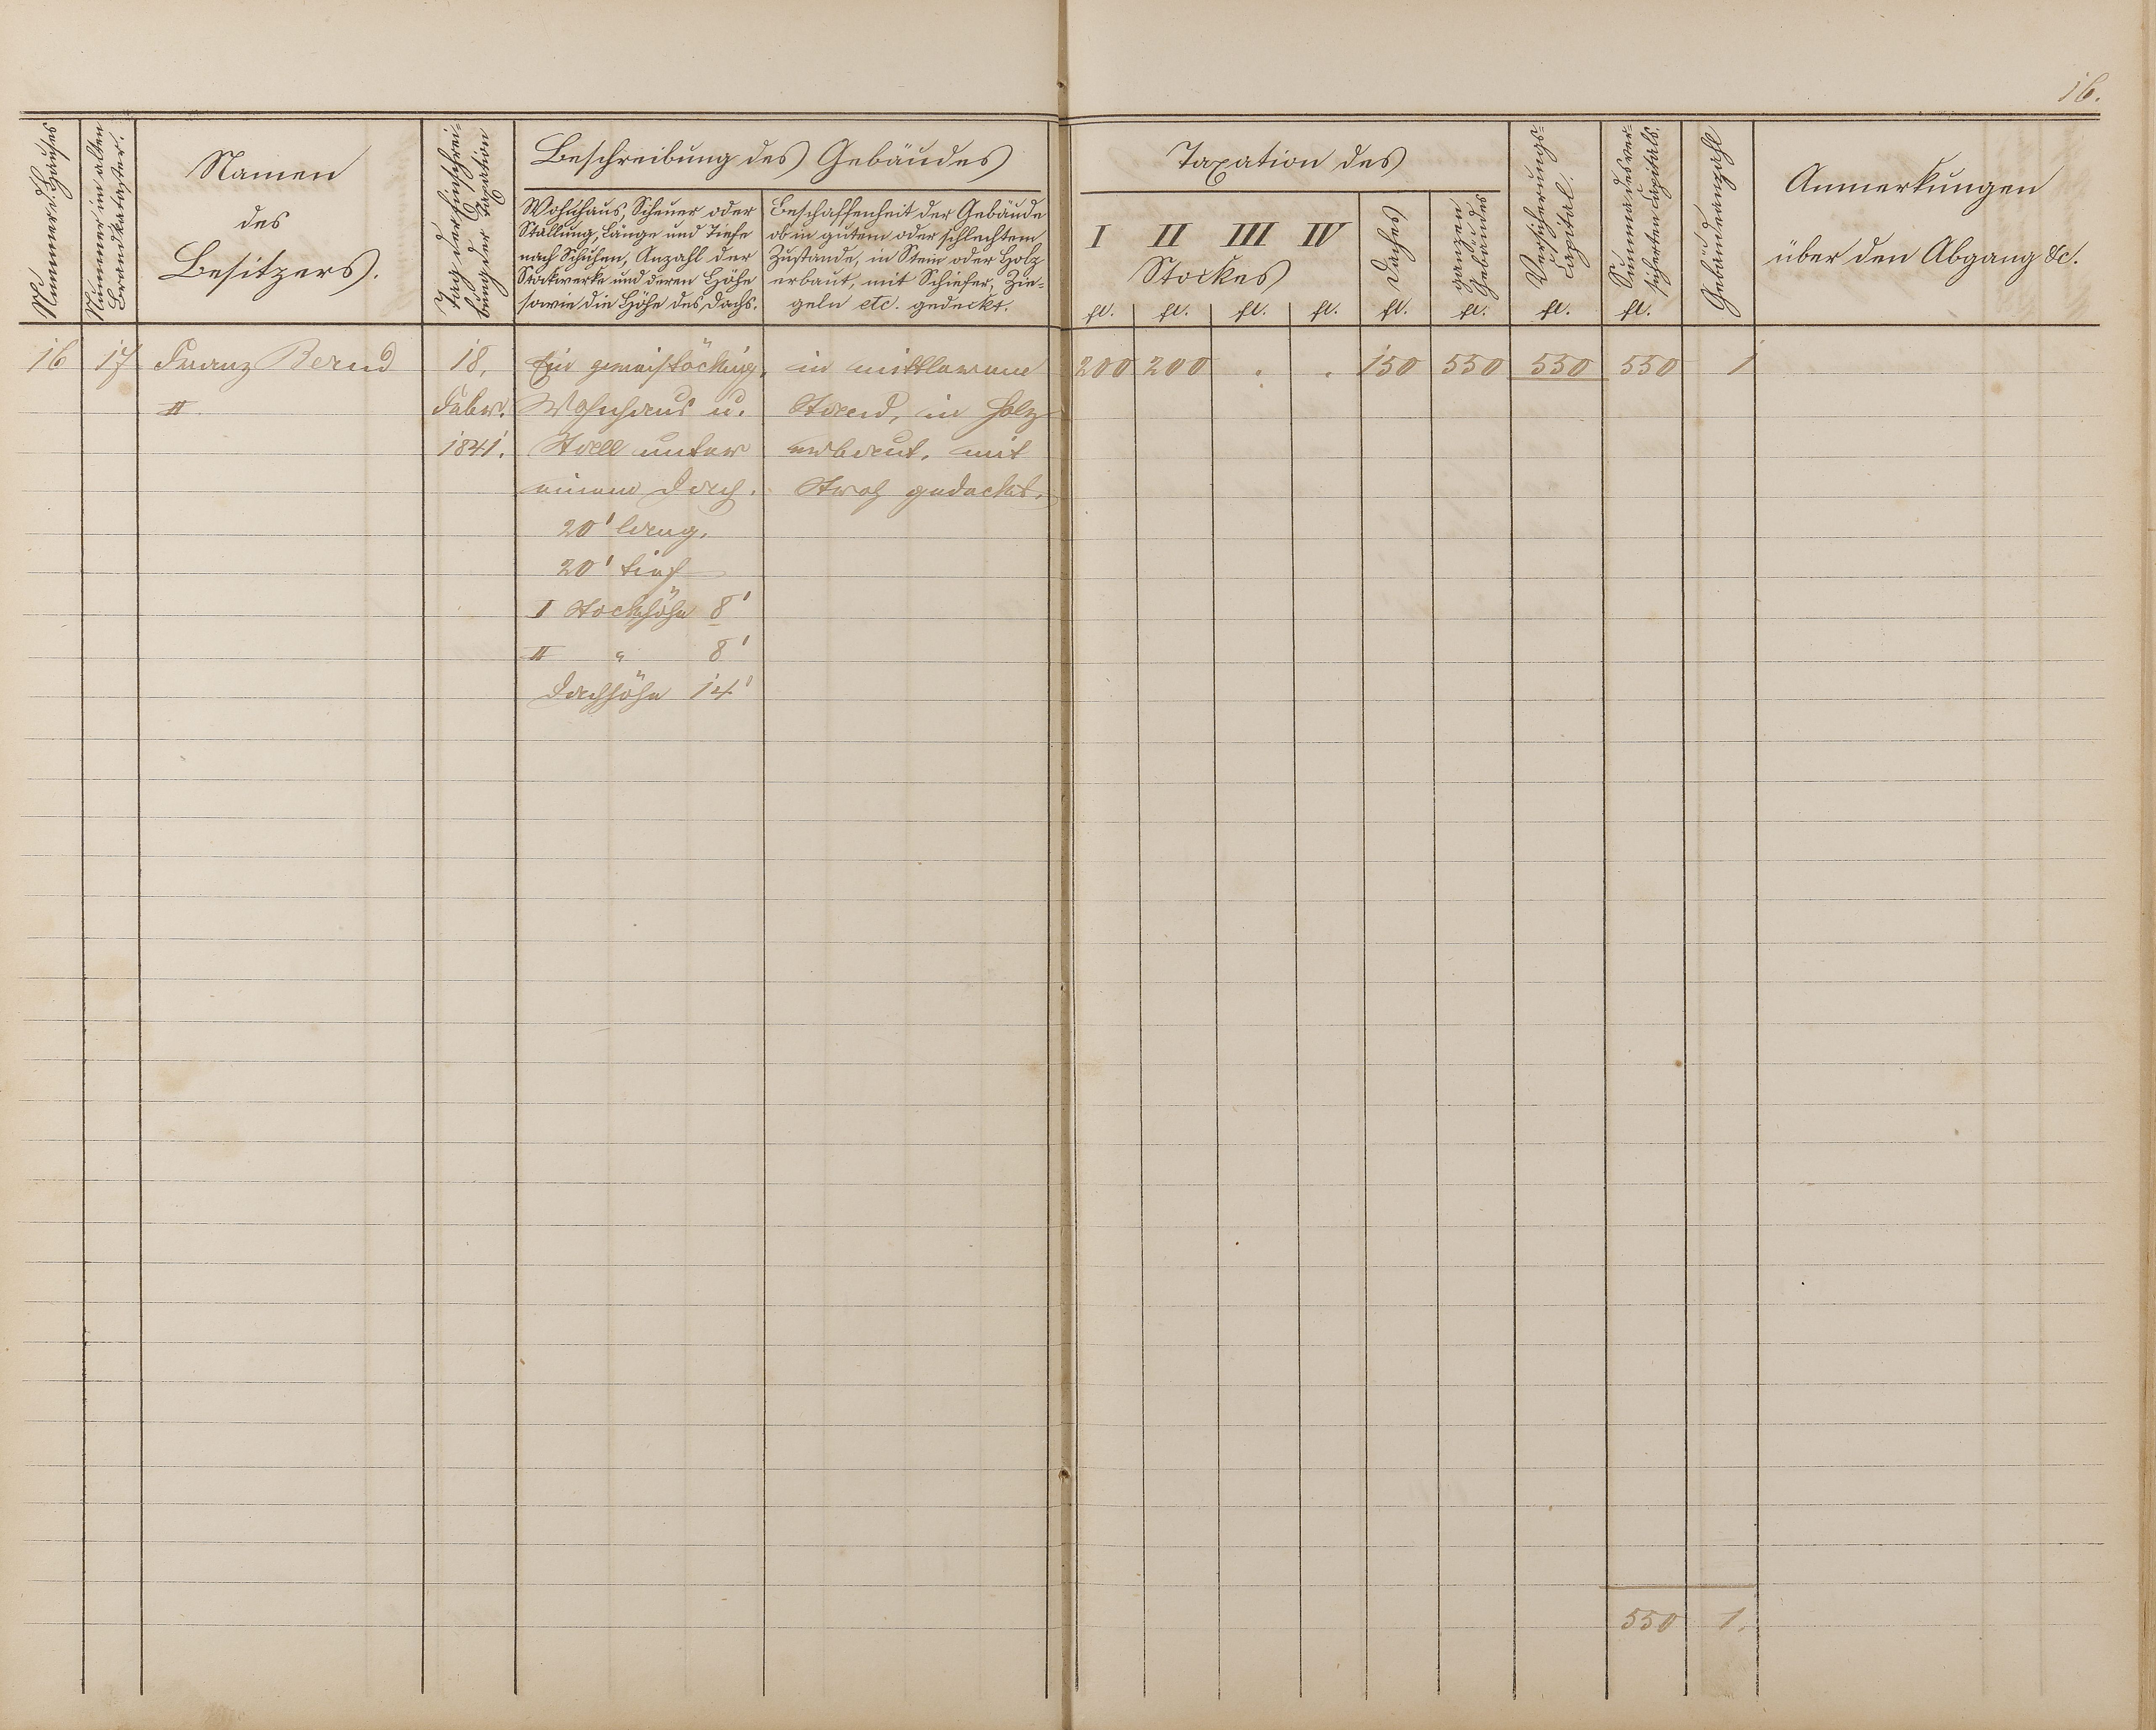 16.
Nummer d. Hauses
Nummer im alten
Brandkataster.
Namen
des
Besitzers.
Tag der Einschrei-
bung der Taxation
Beschreibung des Gebäudes
Wohnhaus, Scheuer oder
Stallung, Länge und Tiefe
nach Schuhen, Anzahl der
Stockwerke und deren Höhe
sowie die Höhe des Dachs.
Beschaffenheit der Gebäude
ob in gutem oder schlechtem
Zustande, in Stein oder Holz
erbaut, mit Schiefer, Zie-
geln etc. gedeckt.
Taxation des
I II III IV
Stockes
Daches
ganzen
Gebäudes
Versicherungs-
Capital.
Summa des ver-
sicherten Capitals.
Gebäudeanzahl
Anmerkungen
über den Abgang &c.
fl. fl. fl. fl. fl. fl. fl. fl.
16 17 Franz Bernd 18. Ein zweistöckig. in mittlerem 200 200 . . 150 550 550 550 1
II Febr. Wohnhaus u. Stand, in Holz
1841. Stall unter erbaut, mit
einem Dach. Stroh gedeckt.
20' lang.
20' tief
I Stockhöhe 8'
II " 8'
Dachhöhe 14'
550 1.